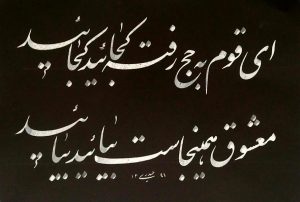 ای قوم به حج رفته کجائید کجائید
معشوق همینجاست بیائید بیائید